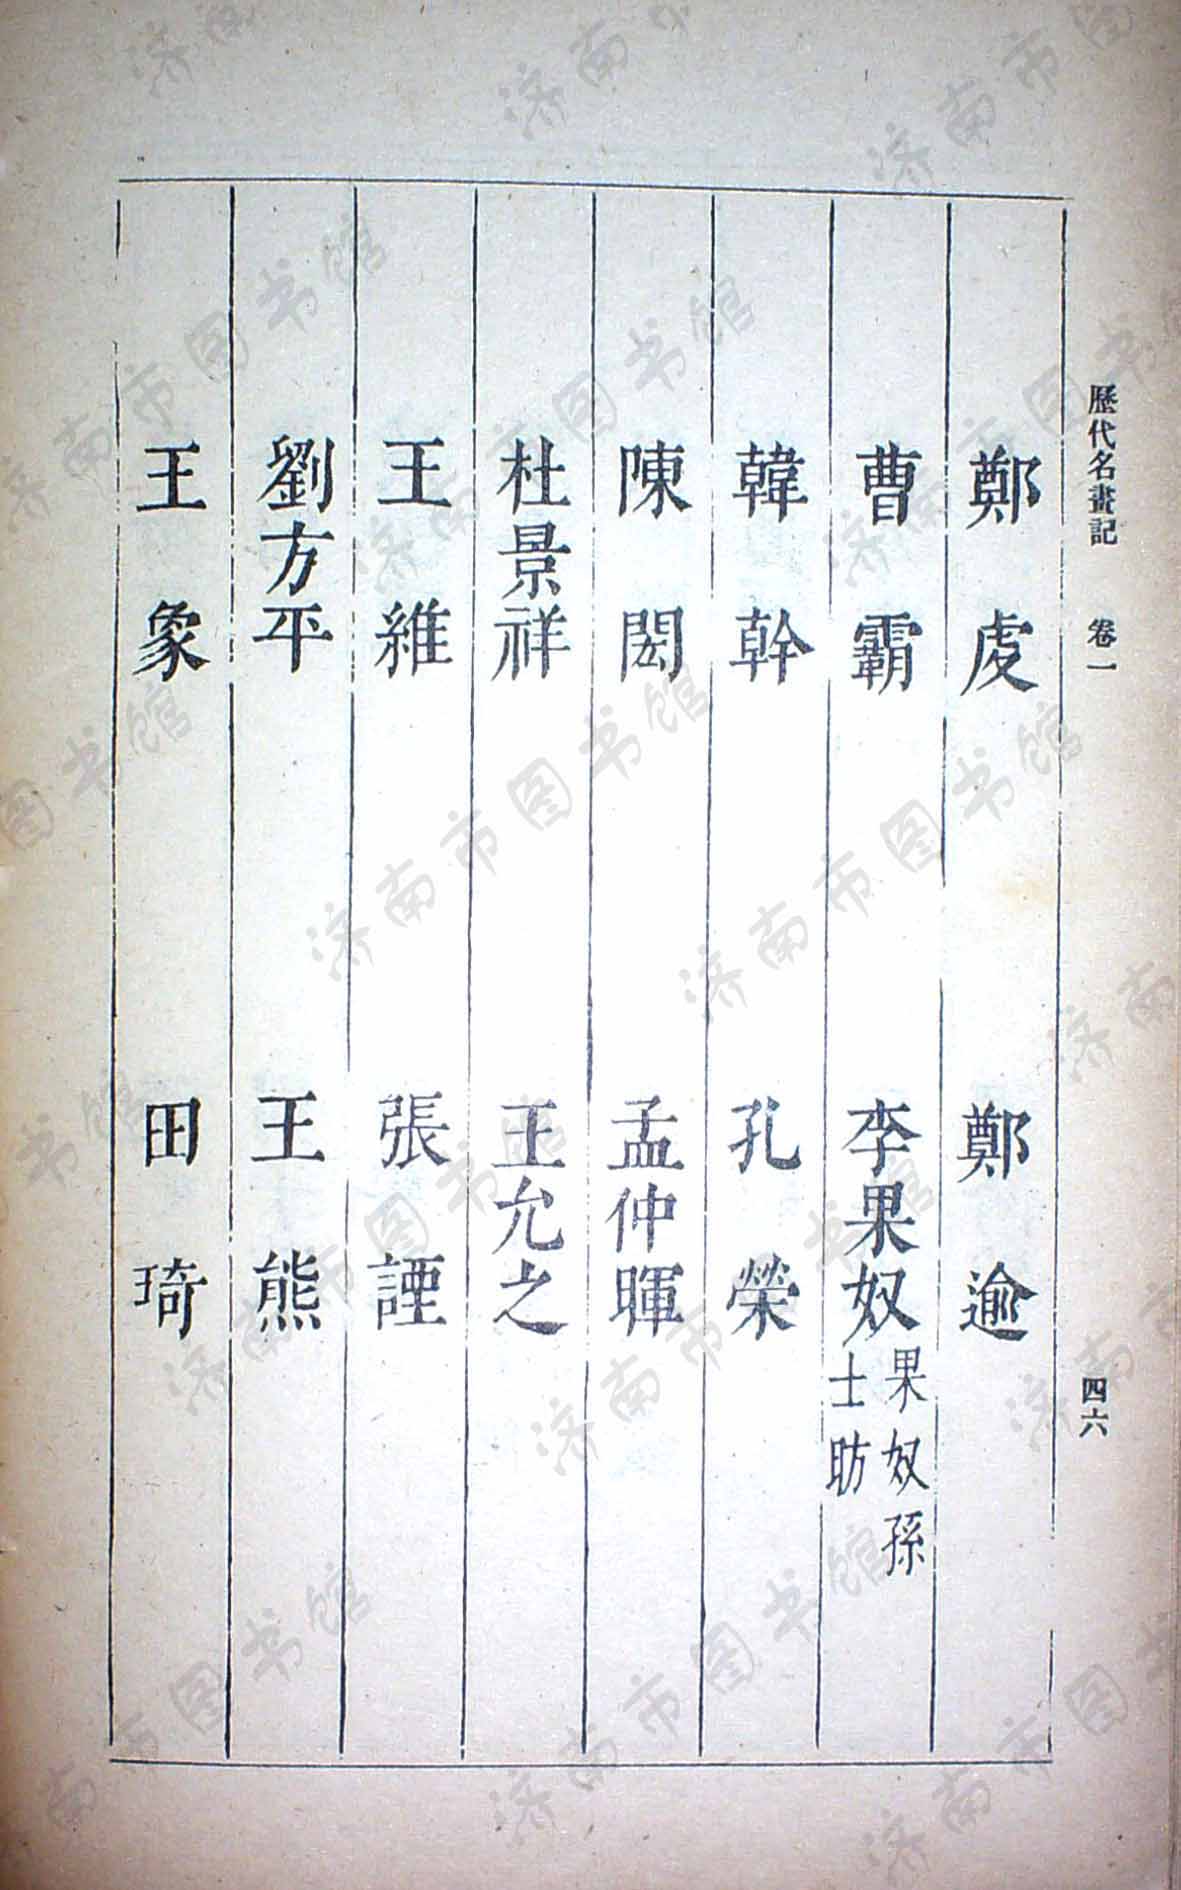 歷代名畫記 卷一 四六
鄭虔 鄭逾
曹霸 李果奴 果奴孫士昉
韓幹 孔榮
陳閎 孟仲暉
杜景祥 王允之
王維 張諲
劉方平 王熊
王象 田琦
济南市图书馆